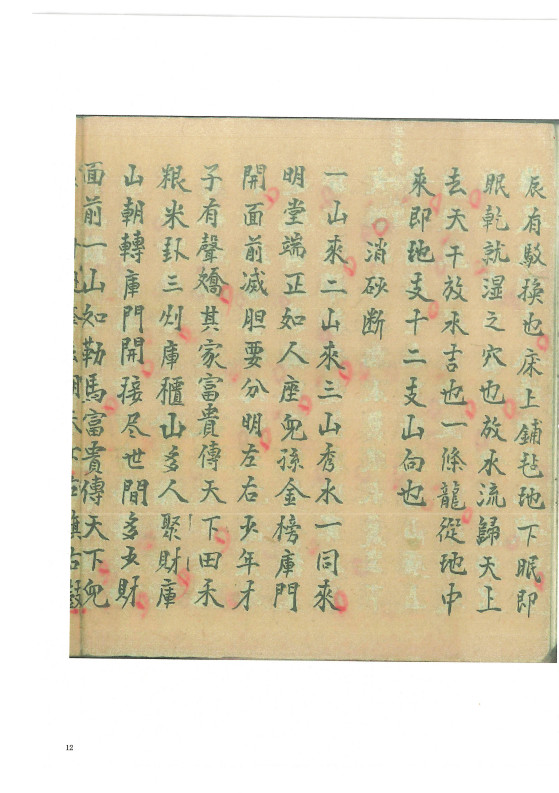 辰有駁換也床上鋪毡地下眠即
眠乾就湿之穴也放水流歸天上
去天干放水吉也一條龍從地中
來即地支十二支山向也
消砂断
一山來二山來三山秀水一同來
明堂端正如人座兒孫金榜庫門
開面前减胆要分明左右少年才
子有聲嬌其家富貴傳天下田禾
粮米卦三刈庫櫃山多人聚財庫
山朝轉庫門開接尽世間多少財
面前一山如勒馬富貴傳天下兒
旗右鼓
12